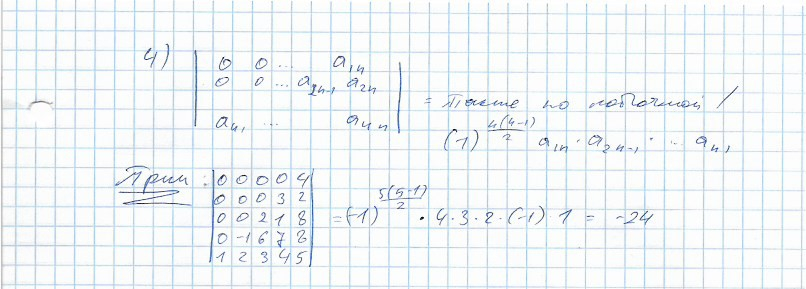 4)
0 0 ... a1n
0 0 ... a2n-1 a2n
an1 ... ann
= по побочной /
(-1)^(n(n-1)/2) a1n · a2n-1 · ... an1
Прим:
0 0 0 0 4
0 0 0 3 2
0 0 2 1 8
0 -1 6 7 8
1 2 3 4 5
= (-1)^(5(5-1)/2) · 4·3·2·(-1)·1 = -24